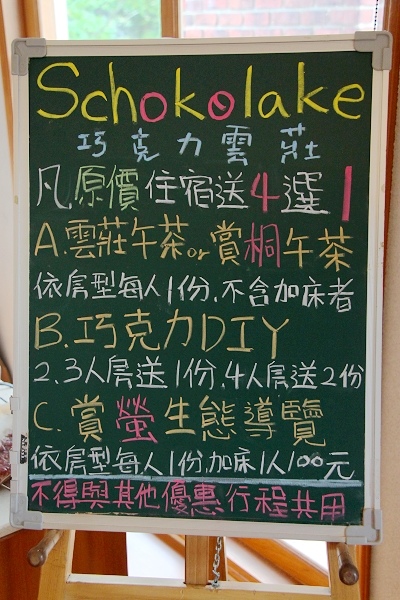 Schokolake
巧克力雲莊
凡原價住宿送4選1
A.雲莊午茶or賞桐午茶
依房型每人1份.不含加床者
B.巧克力DIY
2.3人房送1份.4人房送2份
C.賞螢生態導覽
依房型每人1份.加床1人100元
不得與其他優惠行程共用